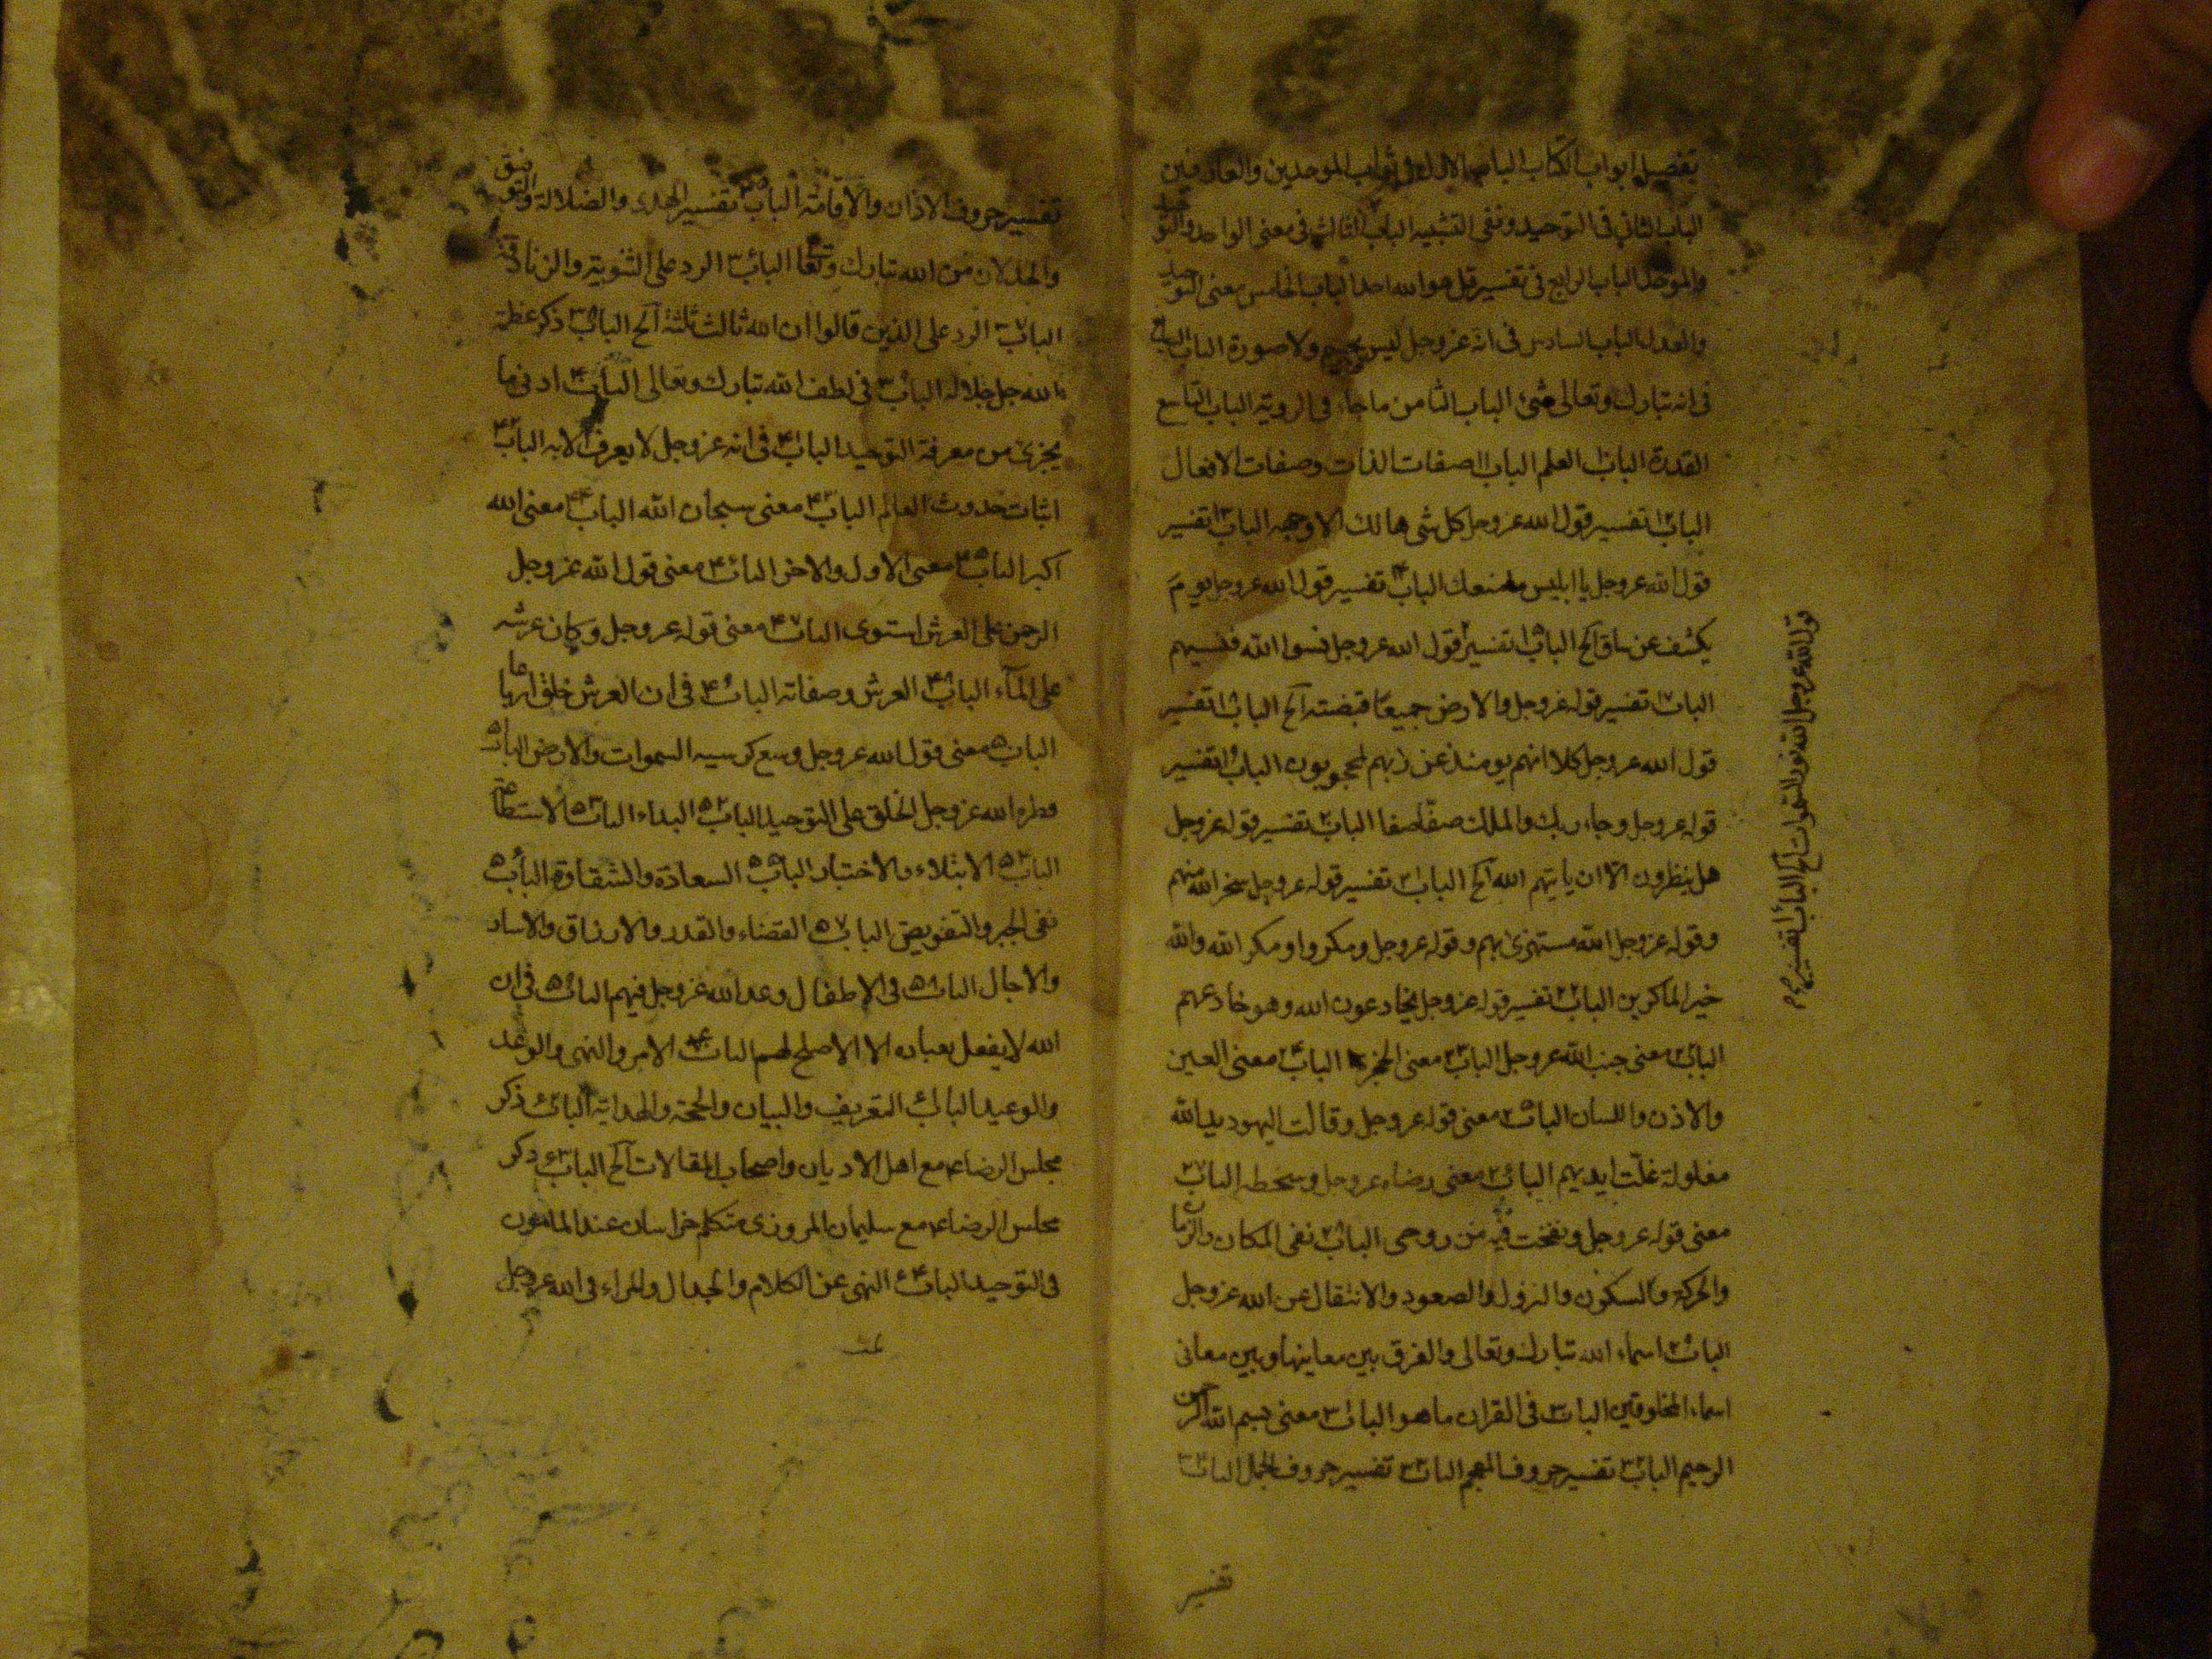 تفصيل ابواب الكتاب الباب الاول في ثواب الموحدين والعارفين
الباب الثاني في التوحيد ونفي التشبيه الباب الثالث في معنى الواحد والتوحيد
والموحد الباب الرابع في تفسير قل هو الله احد الباب الخامس معنى التوحيد
والعدل الباب السادس في انه عز وجل ليس بجسم ولا صورة الباب السابع
في انه تبارك وتعالى شئ الباب الثامن ما جاء في الروية الباب التاسع
القدرة الباب ١٠ العلم الباب ١١ صفات الذات وصفات الافعال
الباب ١٢ تفسير قول الله عز وجل كل شي هالك الا وجهه الباب ١٣ تفسير
قول الله عز وجل يا ابليس ما منعك الباب ١۴ تفسير قول الله عز وجل يوم
يكشف عن ساق الخ الباب ١۶ تفسير قول الله عز وجل نسوا الله فنسيهم
الباب ١٧ تفسير قوله عز وجل والارض جميعا قبضته الخ الباب ١٨ تفسير
قول الله عز وجل كلا انهم يومئذ عن ربهم لمحجوبون الباب ١٩ تفسير
قوله عز وجل وجاء ربك والملك صفا صفا الباب ٢٠ تفسير قوله عز وجل
هل ينظرون الا ان ياتيهم الله الخ الباب ٢١ تفسير قوله عز وجل سخر الله منهم
وقوله عز وجل الله مستهزئ بهم وقوله عز وجل ومكروا ومكر الله والله
خير الماكرين الباب تفسير قوله عز وجل يخادعون الله وهو خادعهم
الباب ٢٢ معنى جنب الله عز وجل الباب ٢٣ معنى الحجزة الباب ٢۴ معنى العين
والاذن واللسان الباب ٢۵ معنى قوله عز وجل وقالت اليهود يد الله
مغلولة غلت ايديهم الباب ٢۶ معنى رضاه عز وجل وسخطه الباب ٢٧
معنى قوله عز وجل ونفخت فيه من روحي الباب ٢٨ نفي المكان والزمان
والحركة والسكون والنزول والصعود والانتقال عن الله عز وجل
الباب ٢٩ اسماء الله تبارك وتعالى والفرق بين معانيها وبين معاني
اسماء المخلوقين الباب ٣٠ في القران ما هو الباب ٣١ معنى بسم الله الرحمن
الرحيم الباب ٣٢ تفسير حروف المعجم الباب ٣٣ تفسير حروف الجمل الباب ٣۴
تفسير
قول الله عز وجل الله نور السموات الخ الباب ١۶ تفسير
تفسير حروف الاذان والاقامة الباب ٣۵ تفسير الهدى والضلالة والتوفيق
والخذلان من الله تبارك وتعالى الباب ٣۶ الرد على الثنوية والزنادقة
الباب ٣٧ الرد على الذين قالوا ان الله ثالث ثلثة الخ الباب ٣٨ ذكر عظمة
الله جل جلاله الباب ٣٩ في لطف الله تبارك وتعالى الباب ۴٠ ادنى ما
يجزئ من معرفة التوحيد الباب ۴١ في انه عز وجل لا يعرف الا به الباب ۴٢
اثبات حدوث العالم الباب ۴٣ معنى سبحان الله الباب ۴۴ معنى الله
اكبر الباب ۴۵ معنى الاول والاخر الباب ۴۶ معنى قول الله عز وجل
الرحمن على العرش استوى الباب ۴٧ معنى قوله عز وجل وكان عرشه
على المآء الباب ۴٨ العرش وصفاته الباب ۴٩ في ان العرش خلق ارباعا
الباب ۵٠ معنى قول الله عز وجل وسع كرسيه السموات والارض الباب ۵١
فطرة الله عز وجل الخلق على التوحيد الباب ۵٢ البداء الباب ۵٣ الاستطاعة
الباب ۵۴ الابتلاء والاختبار الباب ۵۵ السعادة والشقاوة الباب ۵۶
نفي الجبر والتفويض الباب ۵٧ القضاء والقدر والارزاق والاسعار
والاجال الباب ۵٨ في الاطفال وعدل الله عز وجل فيهم الباب ۵٩ في ان
الله لا يفعل بعباده الا الاصلح لهم الباب ۶٠ الامر والنهى والوعد
والوعيد الباب ۶١ التعريف والبيان والحجة والهداية الباب ۶٢ ذكر
مجلس الرضا ع مع اهل الاديان واصحاب المقالات الخ الباب ۶٣ ذكر
مجلس الرضا ع مع سليمان المروزى متكلم خراسان عند المامون
في التوحيد الباب ۶۴ النهى عن الكلام والجدال والمراء في الله عز وجل
تمت